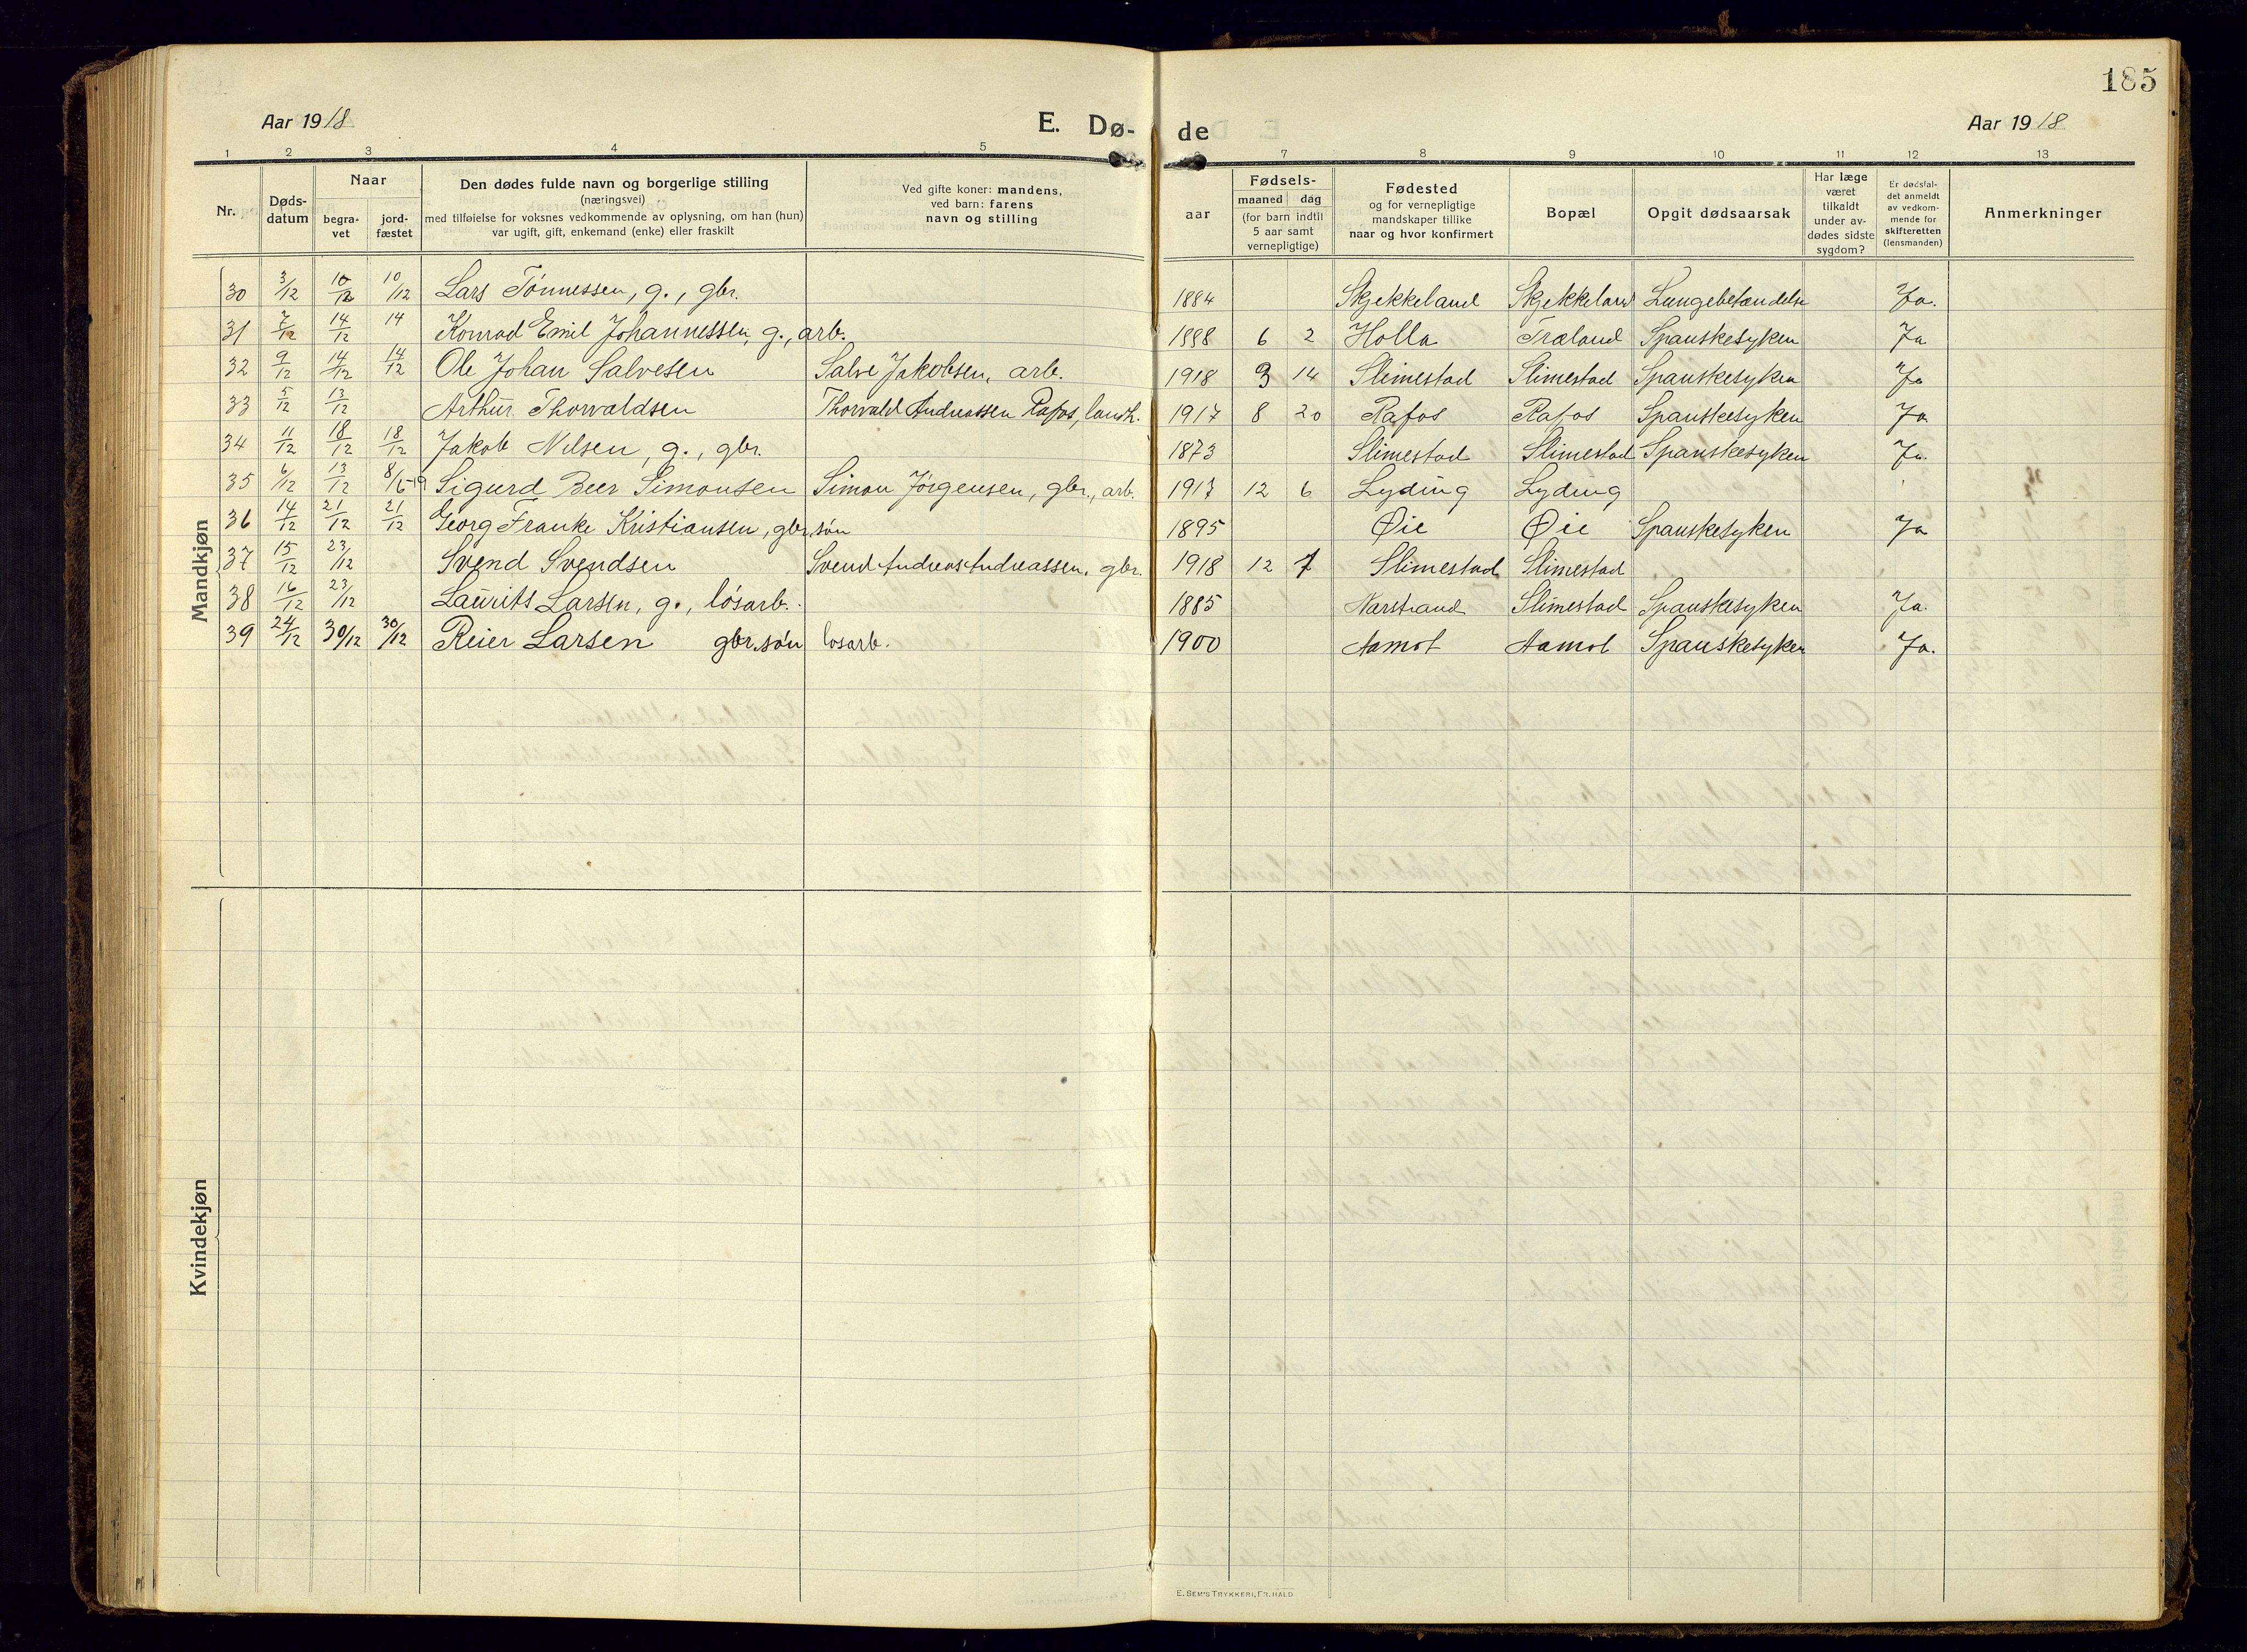 185
Aar 1918
E. Dø-
de
Aar 1918
1 2 3 4 5 7 8 9 10 11 12 13
Nr.
Døds-
datum
Naar
begra-
vet
jord-
fæstet
Den dødes fulde navn og borgerlige stilling
(næringsvei)
med tilføielse for voksnes vedkommende av oplysning, om han (hun)
var ugift, gift, enkemand (enke) eller fraskilt
Ved gifte koner: mandens,
ved barn: farens
navn og stilling
aar
Fødsels-
maaned dag
(for barn indtil
5 aar samt
vernepligtige)
Fødested
og for vernepligtige
mandskaper tillike
naar og hvor konfirmert
Bopæl
Opgit dødsaarsak
Har læge
været
tilkaldt
under av-
dødes sidste
sygdom?
Er dødsfal-
det anmeldt
av vedkom-
mende for
skifteretten
(lensmanden)
Anmerkninger
Mandkjøn
30 3/12 10/12 10/12 Lars Tønnessen, g., gbr. 1884 Skjekkeland Skjekkeland Lungebetændelse Ja.
31 7/12 14/12 14 Konrad Emil Johannessen, g., arb. 1888 6 2 Holla Træland Spanskesyken Ja
32 9/12 14/12 14/12 Ole Johan Salvesen Salve Jakobsen, arb. 1918 3 14 Slimestad Slimestad Spanskesyken Ja
33 5/12 13/12 Arthur Thorvaldsen Thorvald Andreassen Rafos, landh. 1917 8 20 Rafos Rafos Spanskesyken Ja
34 11/12 18/12 18/12 Jakob Nilsen, g., gbr. 1873 Slimestad Slimestad Spanskesyken Ja.
35 6/12 13/12 8/6-19 Sigurd Beer Simonsen Simon Jørgensen, gbr., arb. 1917 12 6 Lyding Lyding
36 14/12 21/12 21/12 Georg Franke Kristiansen, gbr.søn 1895 Øie Øie Spanskesyken Ja
37 15/12 23/12 Svend Svendsen Svend Andreas Andreassen, gbr. 1918 12 7 Slimestad Slimestad
38 16/12 23/12 Laurits Larsen, g., løsarb. 1885 Narstrand Slimestad Spanskesyken Ja.
39 24/12 30/12 30/12 Reier Larsen gbr.søn løsarb. 1900 Aamot Aamot Spanskesyken Ja.
Kvindekjøn
E. SEM'S TRYKKERI, FR.HALD